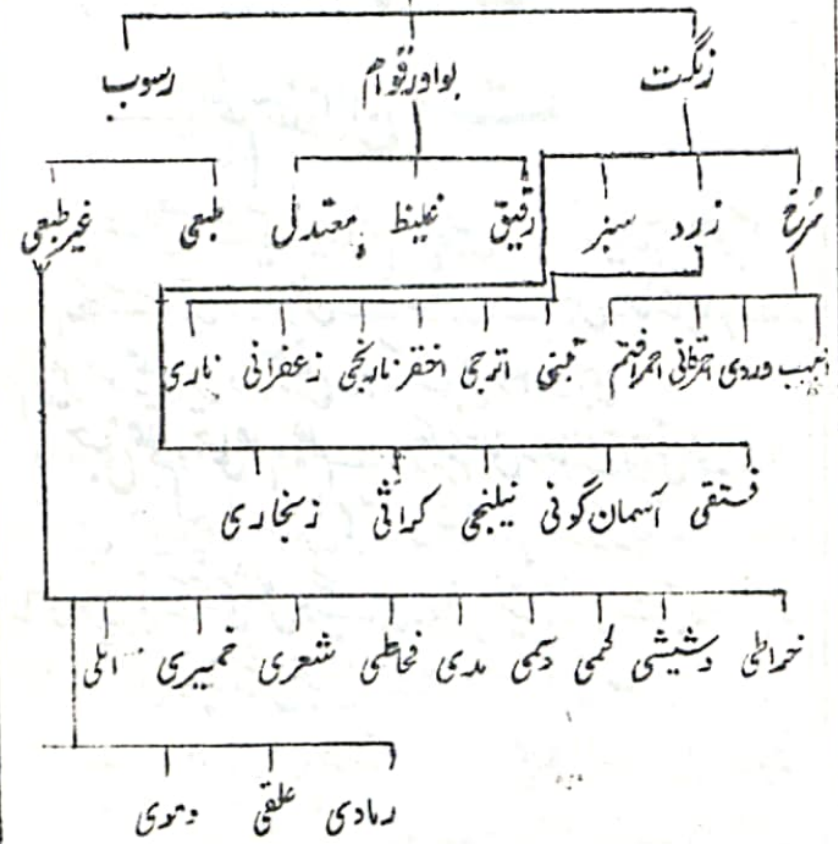 رنگت بو اور قوام رسوب
سرخ زرد سبز رقیق غلیظ معتدل طبعی غیر طبعی
اصہب وردی احمر اقتم تبنی اترجی اشقر نارنجی زعفرانی ناری
فستقی آسمان گونی نیلنجی کراثی زنجاری
خراطی دشیشی لحمی دسمی مدی مخاطی شعری خمیری رملی
رمادی علقی دموی